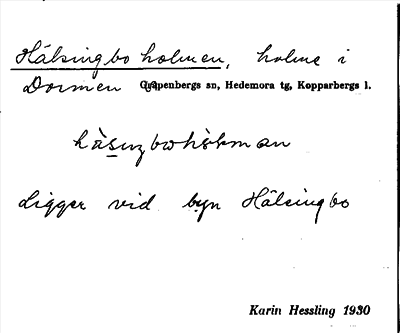 Hälsingboholmen, holme i
Dormen Garpenbergs sn, Hedemora tg, Kopparbergs l.
Ligger vid byn Hälsingbo
Karin Hessling 1930